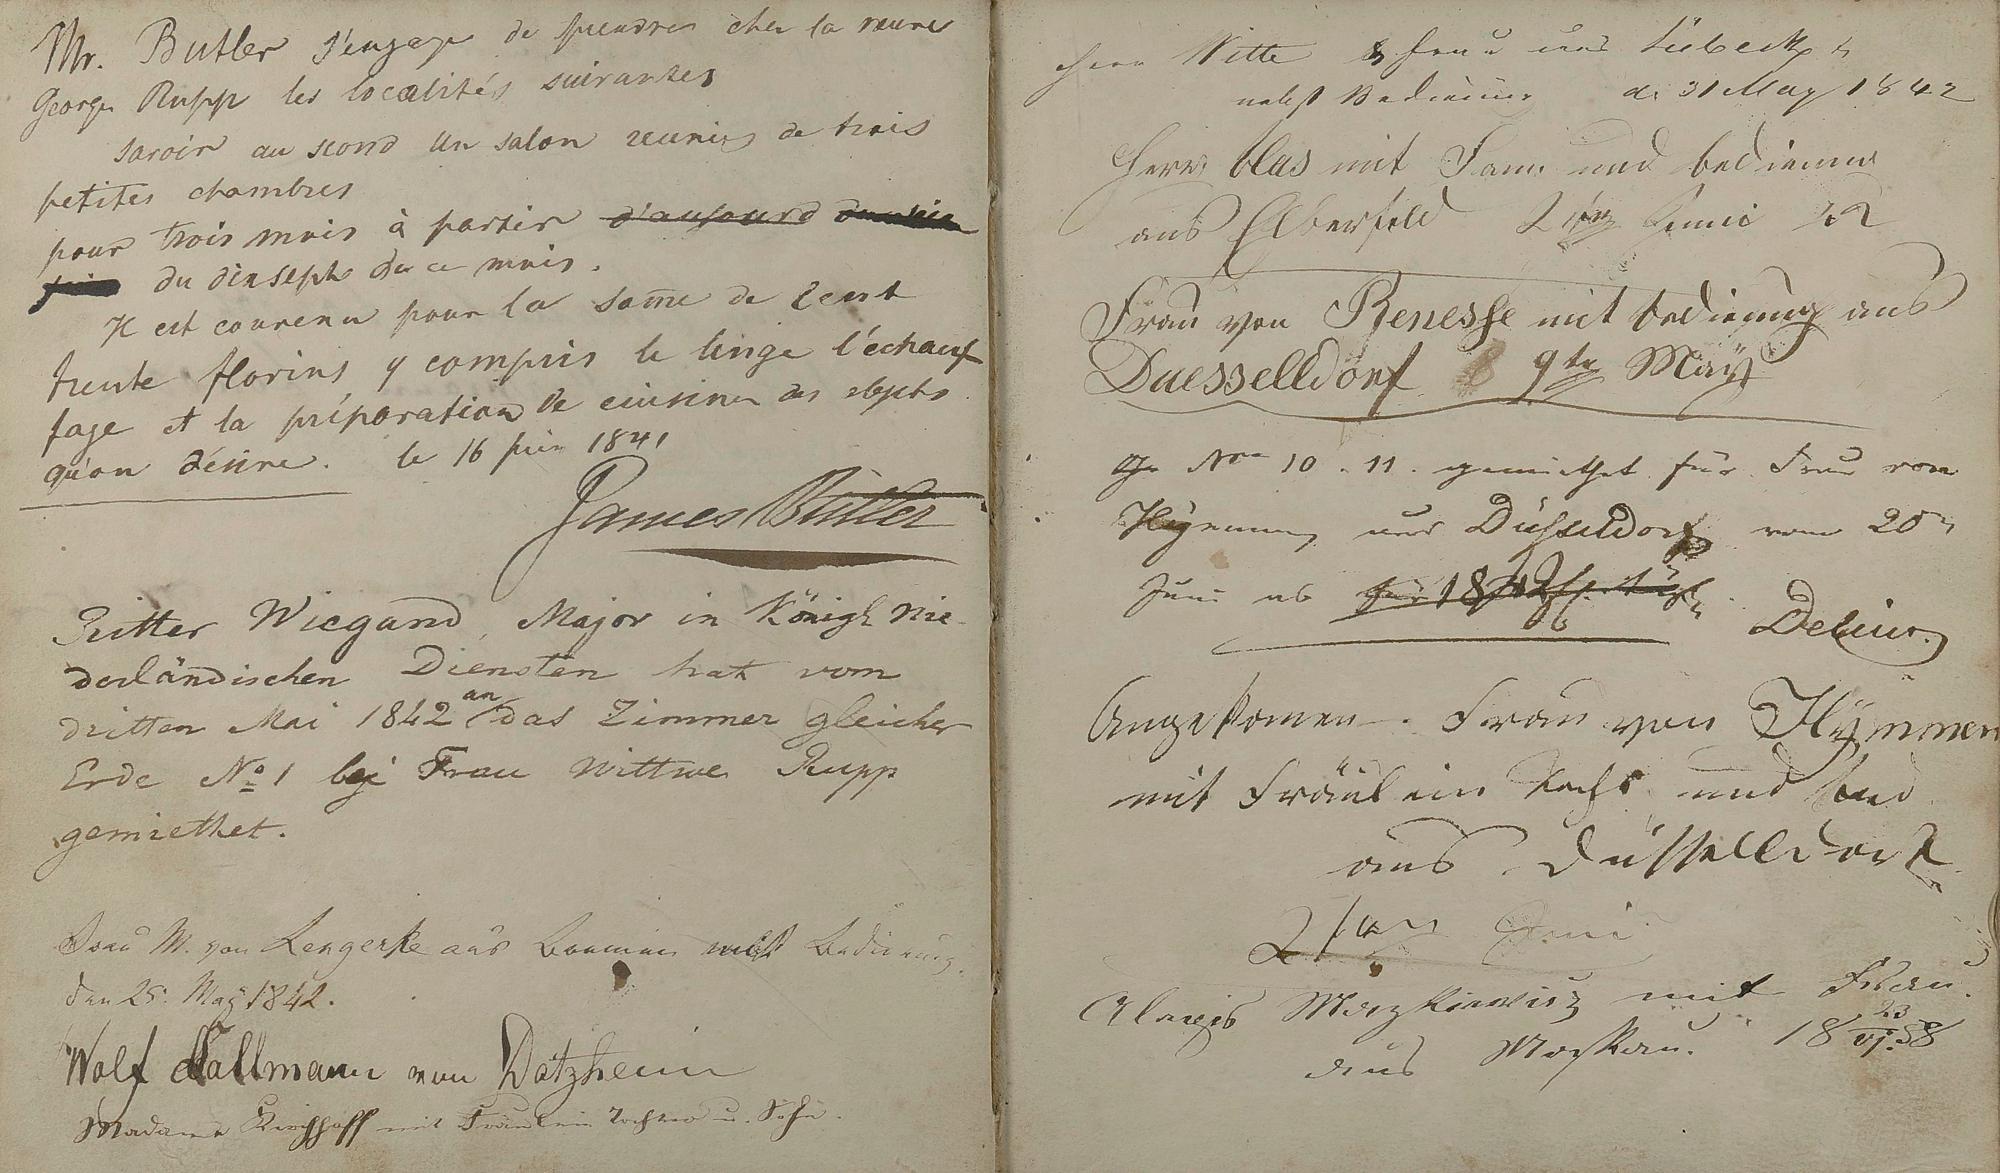 Mr. Butler s'engage de prendre chez la veuve
George Rupp les localités suivantes
savoir au second un salon reunie de trois
petites chambres
pour trois mois à partir d'aujourd
du dixsept de ce mois.
Il est convenu pour la some de cent
trente florins y compris le linge l'échauf
fage et la préparation de cuisine des objets
qu'on désire. le 16 juin 1841
James Butler
Ritter Wiegand, Major in Königl Nie-
derländischen Diensten hat vom
dritten Mai 1842 an das Zimmer gleicher
Erde No 1 bei Frau Wittwe Rupp
gemiethet.
Frau M. von Lengerke aus Bremen nebst Bedienung.
den 25. May 1842.
Wolf Kallmann von Datzheim
Madame Kirchhoff mit Fräulein Tochter u. Sohn.
Herr Witte & Frau aus Lübeck
nebst Bedienung d. 31 May 1842
Herr Blas mit Fam. und bedienung
aus Elberfeld 2ten Juni 42
Frau von Renesse mit bedienung aus
Duesselldorf 9te May
No 10. 11. gemiethet für Frau von
Hymmen aus Düsseldorf vom 20
Juni ab für 1842
Delius.
Angekomen. Frau von Hÿmmen
mit Fräulein Tochter und bed
aus Düsselldorf
21ten Juni
Alexis Mazkiewicz mit Frau.
aus Moskau. 18 23/VI. 58